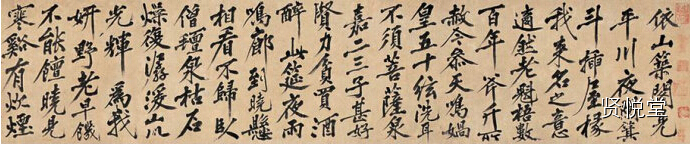 依山築閣見
平川夜闌箕
斗插屋椽
我來名之意
適然老魁梧數
百年斧斤所
赦今參天鳴媧
皇五十絃洗耳
不須菩薩泉
嘉二三子甚好
賢力貧買酒
醉此筵夜雨
鳴廊到曉懸
相看不歸臥
僧氊泉枯石
燥復潺湲山川
光輝為我
妍野老早饑
不能饘曉見
寒谿有炊煙
贤悦堂